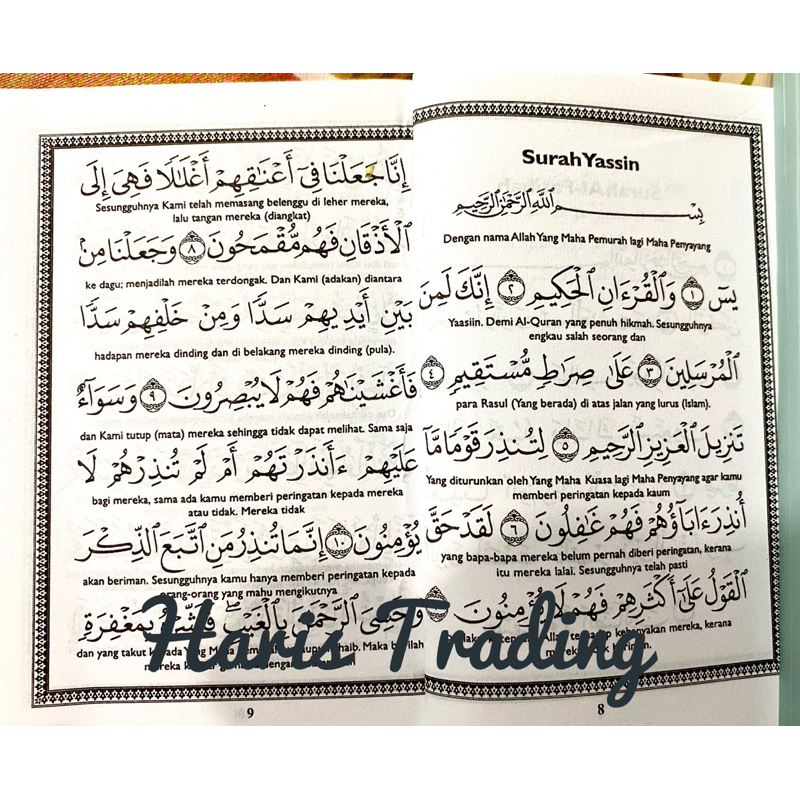 Surah Yassin
بِسْمِ اللَّهِ الرَّحْمَٰنِ الرَّحِيمِ
Dengan nama Allah Yang Maha Pemurah lagi Maha Penyayang
يسٓ ١ وَالْقُرْءَانِ الْحَكِيمِ ٢ إِنَّكَ لَمِنَ
Yaasiin. Demi Al-Quran yang penuh hikmah. Sesungguhnya
engkau salah seorang dan
الْمُرْسَلِينَ ٣ عَلَىٰ صِرَاطٍ مُّسْتَقِيمٍ ٤
para Rasul (Yang berada) di atas jalan yang lurus (Islam).
تَنزِيلَ الْعَزِيزِ الرَّحِيمِ ٥ لِتُنذِرَ قَوْمًا مَّآ
Yang diturunkan oleh Yang Maha Kuasa lagi Maha Penyayang agar kamu
memberi peringatan kepada kaum
أُنذِرَ ءَابَآؤُهُمْ فَهُمْ غَٰفِلُونَ ٦ لَقَدْ حَقَّ
yang bapa-bapa mereka belum pernah diberi peringatan, kerana
itu mereka lalai. Sesungguhnya telah pasti
الْقَوْلُ عَلَىٰٓ أَكْثَرِهِمْ فَهُمْ لَا يُؤْمِنُونَ
kebanyakan mereka, kerana
8
إِنَّا جَعَلْنَا فِىٓ أَعْنَٰقِهِمْ أَغْلَٰلًا فَهِىَ إِلَى
Sesungguhnya Kami telah memasang belenggu di leher mereka,
lalu tangan mereka (diangkat)
الْأَذْقَانِ فَهُم مُّقْمَحُونَ ٨ وَجَعَلْنَا مِنۢ
ke dagu; menjadilah mereka terdongak. Dan Kami (adakan) diantara
بَيْنِ أَيْدِيهِمْ سَدًّا وَمِنْ خَلْفِهِمْ سَدًّا
hadapan mereka dinding dan di belakang mereka dinding (pula).
فَأَغْشَيْنَٰهُمْ فَهُمْ لَا يُبْصِرُونَ ٩ وَسَوَآءٌ
dan Kami tutup (mata) mereka sehingga tidak dapat melihat. Sama saja
عَلَيْهِمْ ءَأَنذَرْتَهُمْ أَمْ لَمْ تُنذِرْهُمْ لَا
bagi mereka, sama ada kamu memberi peringatan kepada mereka
atau tidak. Mereka tidak
يُؤْمِنُونَ ١٠ إِنَّمَا تُنذِرُ مَنِ اتَّبَعَ الذِّكْرَ
akan beriman. Sesungguhnya kamu hanya memberi peringatan kepada
orang-orang yang mahu mengikutnya
وَخَشِىَ الرَّحْمَٰنَ بِالْغَيْبِ ۖ فَبَشِّرْهُ بِمَغْفِرَةٍ
dan yang takut Maka
9
Haris Trading